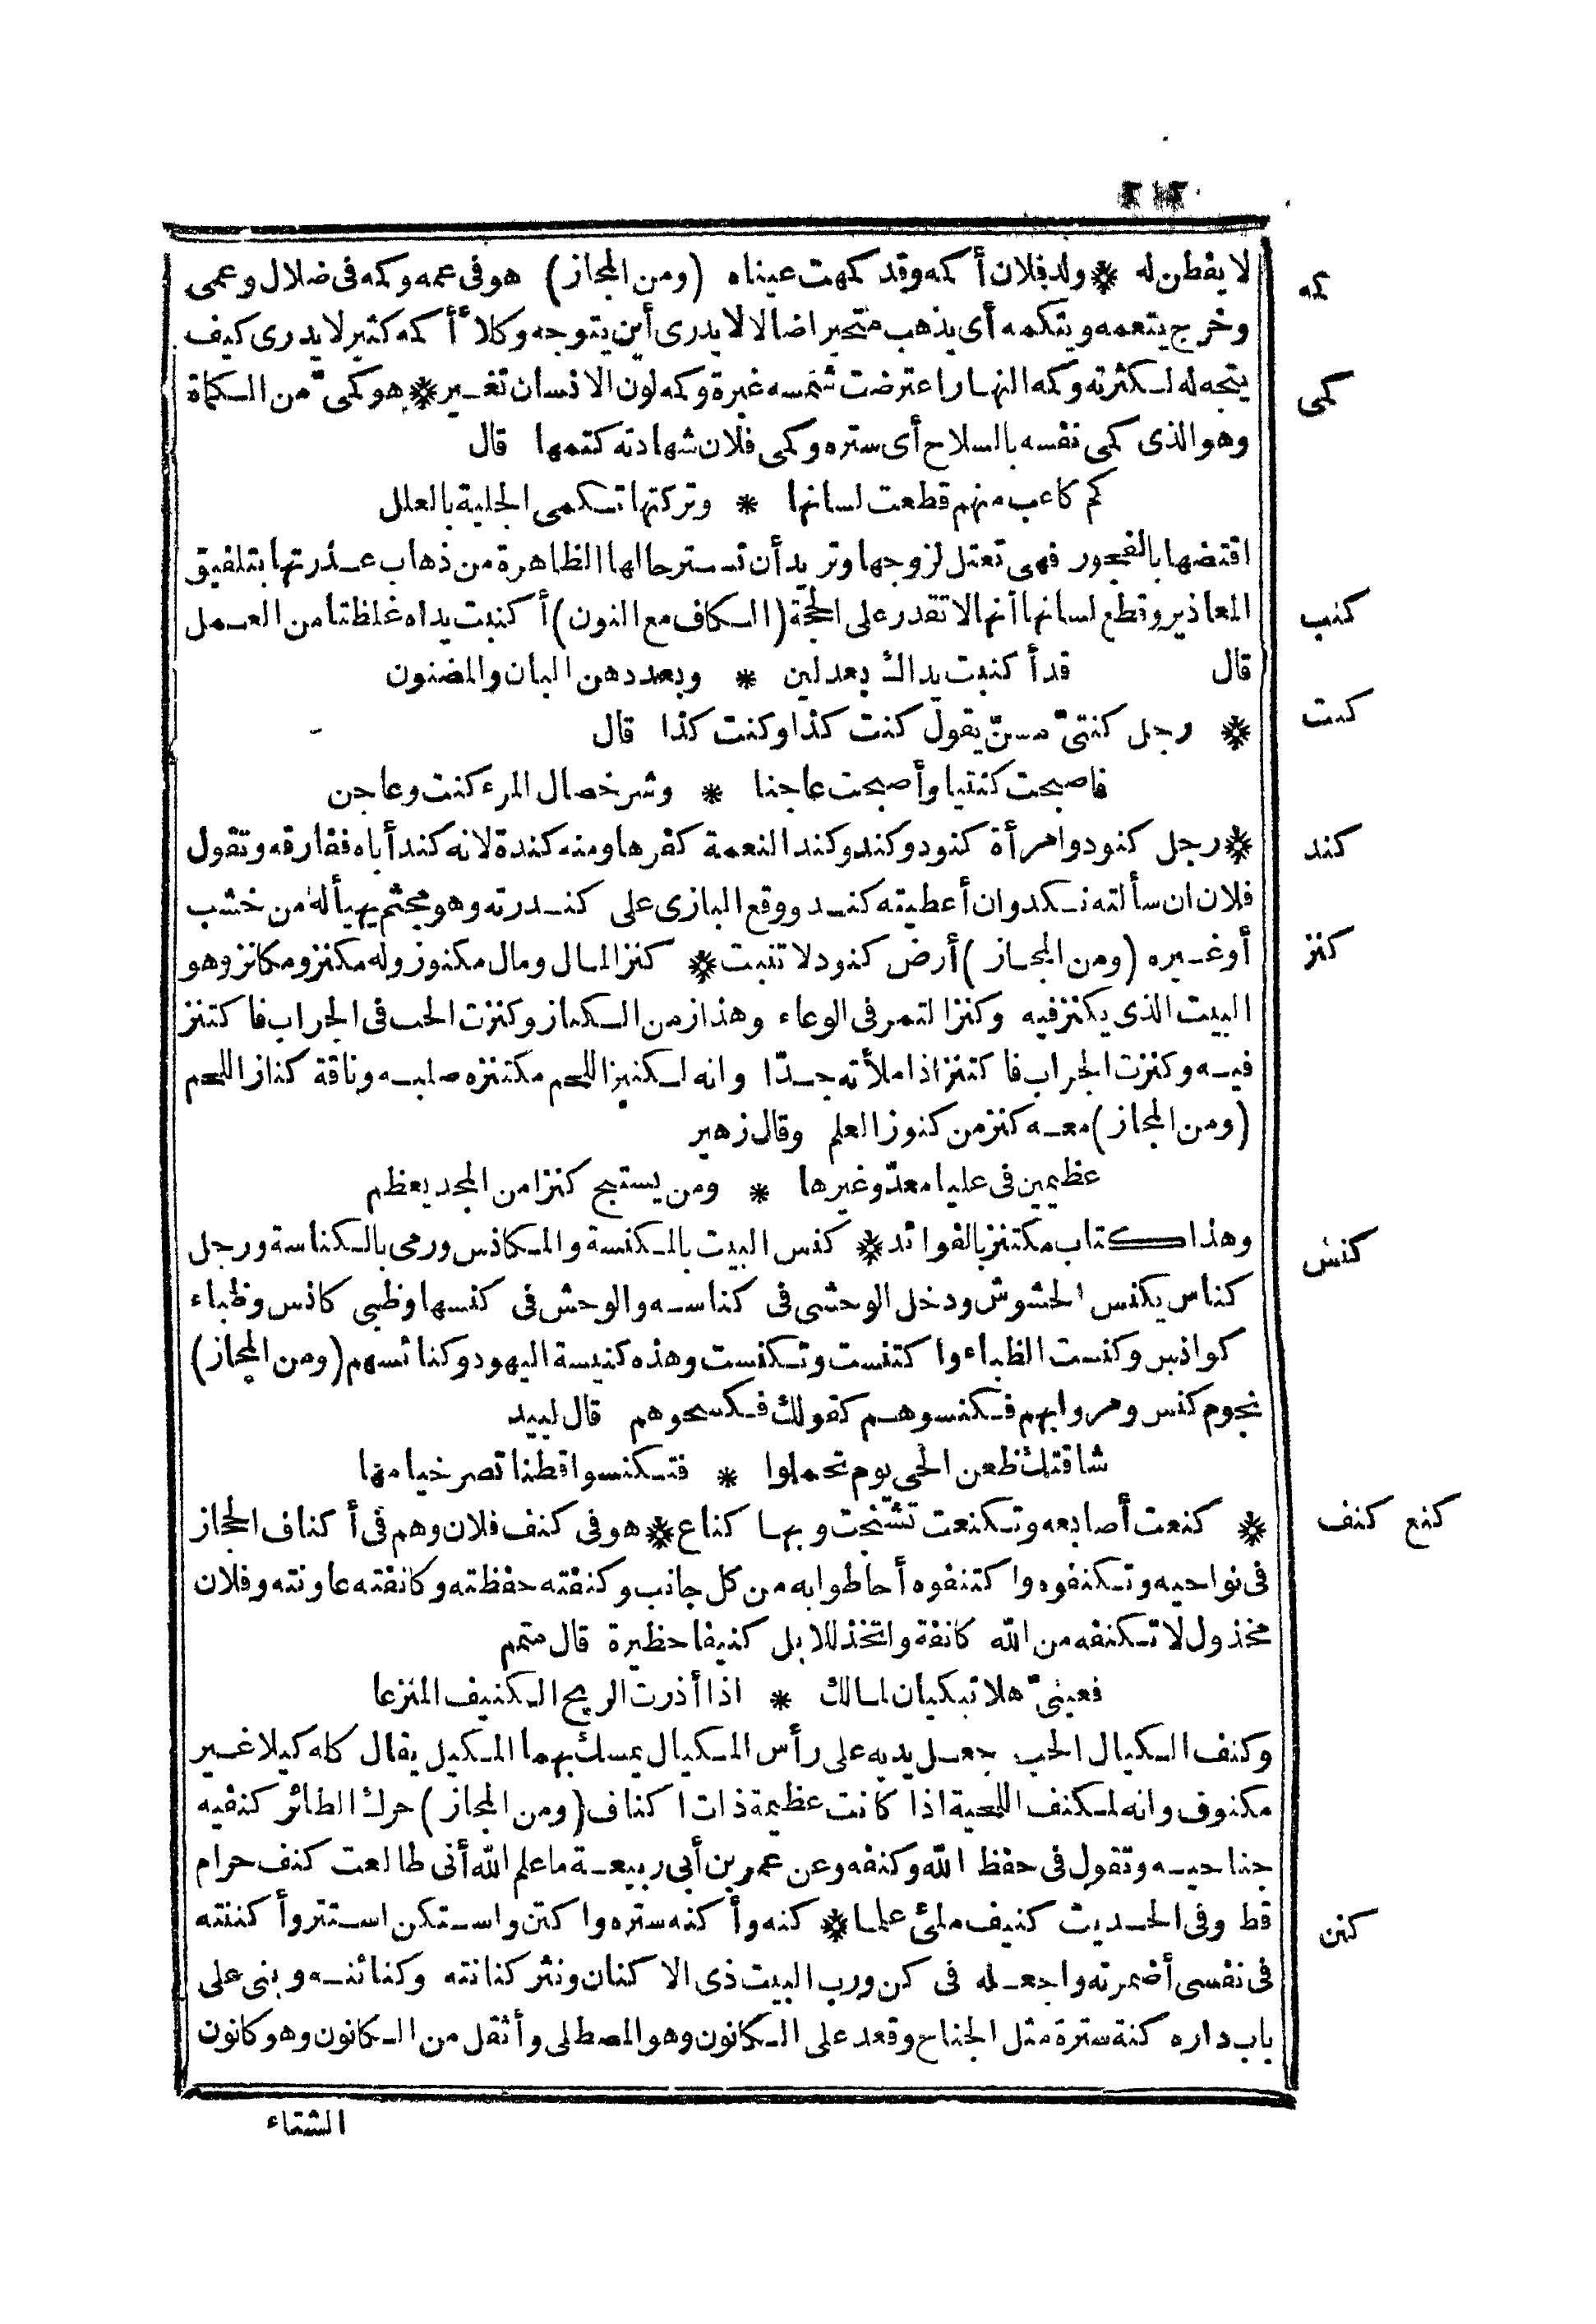 لا يفطن له * ولد فلان أكمه وقد كمهت عيناه (ومن المجاز) هو في عمه وكمه في ضلال وعمى
كمه
وخرج يتعمه ويتكمه أى يذهب متحيرا ضالا لا يدرى أين يتوجه وكلأ أكمه كثير لا يدرى كيف
يتجه له لكثرته وكمه النهار اعترضت شمسه غبرة وكمه لون الانسان تغير * هو كمىّ من الكماة
كمى
وهو الذى كمى نفسه بالسلاح أى ستره وكمى فلان شهادته كتمها قال
كم كاعب منهم قطعت لسانها * وتركتها تكمى الجلية بالعلل
اقتضها بالفجور فهى تعتل لزوجها وتريد أن تستر حالها الظاهرة من ذهاب عذرتها بتلفيق
المعاذير وقطع لسانها أنها لا تقدر على الحجة (الكاف مع النون) أكنبت يداه غلظتا من العمل
كنب
قال قد أكنبت يداك بعد لين * وبعد دهن البان والمضنون
* رجل كنتىّ مسنّ يقول كنت كذا وكنت كذا قال
كنت
فاصبحت كنتيا وأصبحت عاجنا * وشر خصال المرء كنت وعاجن
* رجل كنود وامرأة كنود وكند وكند النعمة كفرها ومنه كندة لانه كند أباه ففارقه وتقول
كند
فلان ان سألته نكد وان أعطيته كند ووقع البازى على كندرته وهو مجثم يهيأ له من خشب
أو غيره (ومن المجاز) أرض كنود لا تنبت * كنز المال ومال مكنوز وله مكنز ومكانز وهو
كنز
البيت الذى يكنز فيه وكنز التمر فى الوعاء وهذا زمن الكناز وكنزت الحب فى الجراب فاكتنز
فيه وكنزت الجراب فاكتنز اذا ملأته جدّا وانه لكنيز اللحم مكتنزه صلبه وناقة كناز اللحم
(ومن المجاز) معه كنز من كنوز العلم وقال زهير
عظيمين فى عليا معدّ وغيرها * ومن يستبح كنزا من المجد يعظم
وهذا كتاب مكتنز بالفوائد * كنس البيت بالمكنسة والمكانس ورمى بالكناسة ورجل
كنس
كناس يكنس الحشوش ودخل الوحشى فى كناسه والوحش فى كنسها وظبى كانس وظباء
كوانس وكنست الظباء واكتنست وتكنست وهذه كنيسة اليهود وكنائسهم (ومن المجاز)
نجوم كنس ومروا بهم فكنسوهم كقولك فكسحوهم قال لبيد
شاقتك ظعن الحى يوم تحملوا * فتكنسوا قطنا تصر خيامها
* كنعت أصابعه وتكنعت تشنجت وبها كناع * هو فى كنف فلان وهم فى أكناف الحجاز
كنع كنف
فى نواحيه وتكنفوه واكتنفوه أحاطوا به من كل جانب وكنفته حفظته وكانفته عاونته وفلان
مخذول لا تكنفه من الله كانفة واتخذ للابل كنيفا حظيرة قال متمم
فعينىّ هلا تبكيان لمالك * اذا أذرت الريح الكنيف المنزعا
وكنف الكيال الحب جعل يديه على رأس المكيال يمسك بهما المكيل يقال كله كيلا غير
مكنوف وانه لمكنف اللحية اذا كانت عظيمة ذات اكناف (ومن المجاز) حرك الطائر كنفيه
جناحيه وتقول فى حفظ الله وكنفه وعن عمر بن أبى ربيعة ما علم الله أنى طالعت كنف حرام
قط وفى الحديث كنيف ملئ علما * كنه وأكنه ستره واكتن واستكن استتر وأكننته
كنن
فى نفسى أضمرته واجعله فى كن ورب البيت ذى الاكنان ونثر كنانته وكنائنه وبنى على
باب داره كنة سترة مثل الجناح وقعد على الكانون وهو المصطلى وأثقل من الكانون وهو كانون
الشتاء